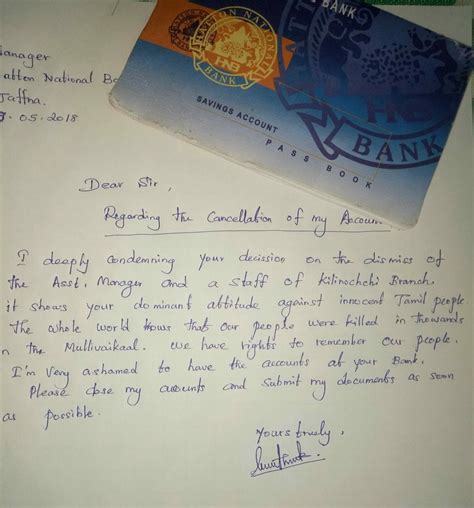 Manager
Hatton National Ba
Jaffna.
.05.2018
BANK
HATTON NATIONAL
HNB
BANK
SAVINGS ACCOUNT
PASS BOOK
HATT
HNB
BANK
Dear Sir,
Regarding the Cancellation of my Accoun
I deeply condemning your decission on the dismiss of
the Asst. Manager and a staff of Kilinochchi Branch.
it shows your dominant attitude against innocent Tamil people
The whole world knows that our people were killed in thousands
n the Mullivaikaal. we have rights to remember our people.
I'm very ashamed to have the accounts at your Bank.
Please close my accounts and submit my documents as soon
as possible.
Yours truely,